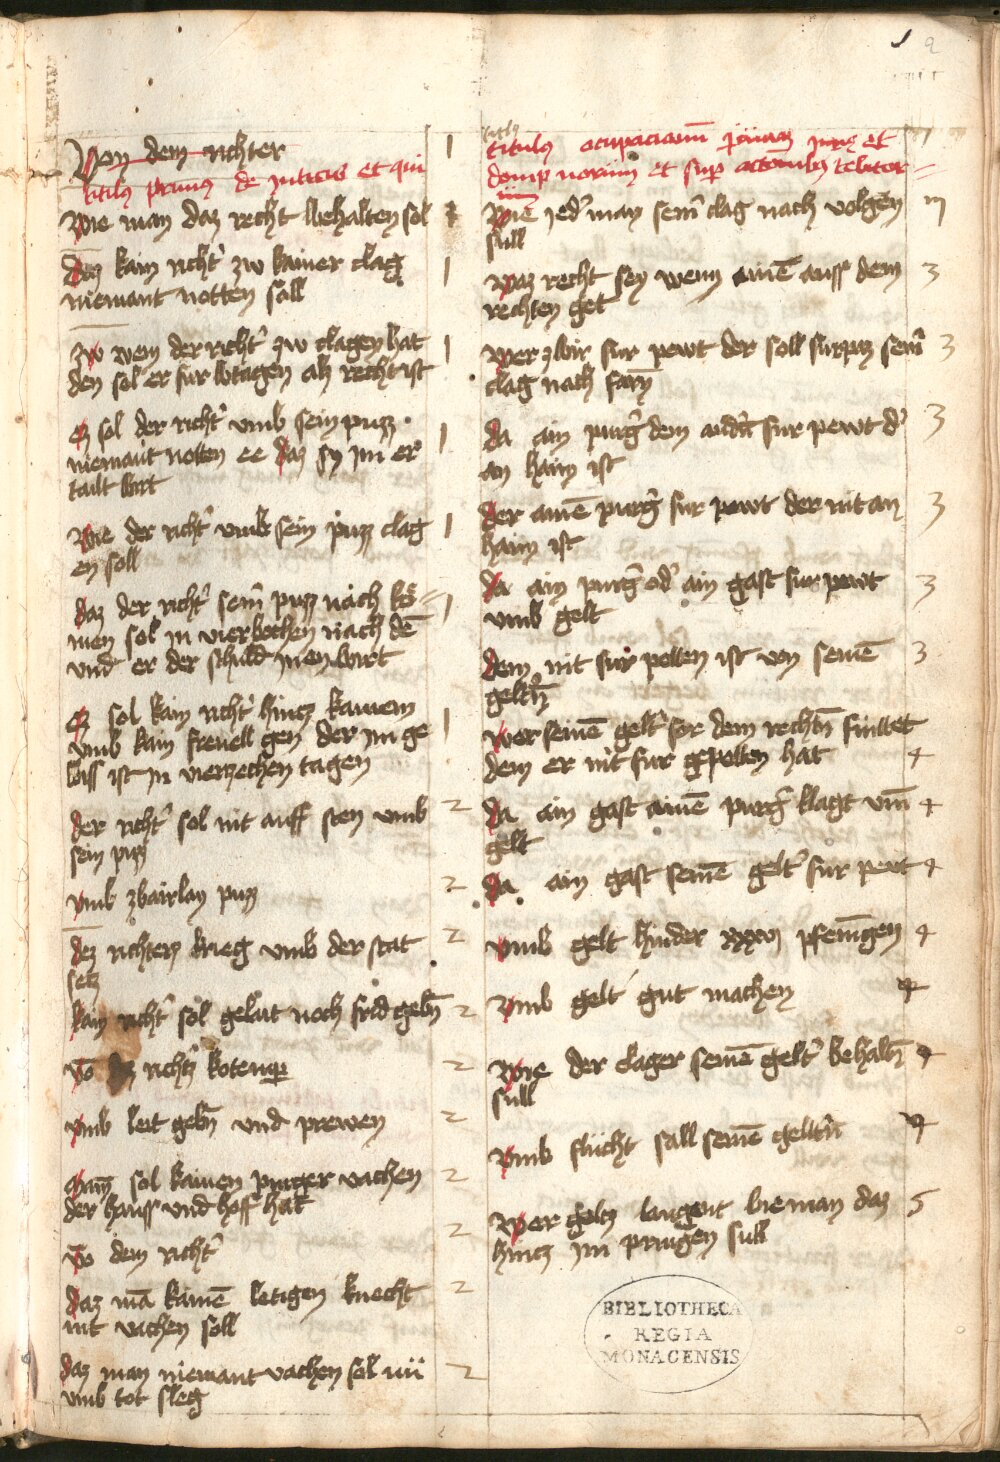 Von dem richter 1
titulus primus de iuticiis et qui
Wie man daz recht behalten sol 1
Daz kain richter zw kainer clag 1
niemant notten soll
zw wem der richter zw clagen hat 1
den sol er fur tagen alz recht ist
Ez sol der richter umb sein puzz
niemant notten ee daz sy im er 1
tailt wirt
Wie der richter umb sein puzz clag 1
en soll
daz der richter seinr puzz nach ko 1
men sol in vier wochen nach dē
und er der schuld inen wirt
Ez sol kain richter hincz kainem
umb kain frevell gen der im ge 1
wiss ist in vierzechen tagen
der richter sol nit auff sten umb 2
sein puzz
umb zbairlay puzz 2
dez richterz krieg umb der stat 2
secz
kain richter sol gelait noch frid gebn̄ 2
Vō richterz 2
umb leit gebn̄ und prewen 2
man sol kainen purger vachen 2
der hauss und hoff hat
Vō dem richter 2
daz mā kainē letigen knecht 2
nit vachen soll
daz man niemant vachen sol nu̇ 2
umb tot sleg
titulus
titulus iuris et
et super
Wie jeder man seinr clag nach volgen III
sull
Waz recht sey wenn ainē auss dem 3
rechten get
Wer fur pewt der soll furpaz seinr 3
clag nach farn̄
da ain purger dem andern fur pewt der 3
an haim ist
der ainē purger fur pewt der nit an 3
haim ist
da ain purger oder ain gast fur pewt 3
umb gelt
dem nit fur potten ist von seinē 3
geltern
Wer seinē gelter vor dem rechtn̄ finttet
dem er nit fur gepotten hat 4
da ain gast ainē purger klagt um̄ 4
gelt
da ain gast seinē gelter fur pewt 4
umb gelt hinder pfenningen 4
umb gelt gut machen 4
Wie der clager seinē gelter behaltn̄ 4
sull
umb flucht sall seinē geltern
Wer geltz laugent wie man daz 5
hincz im pringen sull
BIBLIOTHECA
REGIA
MONACENSIS